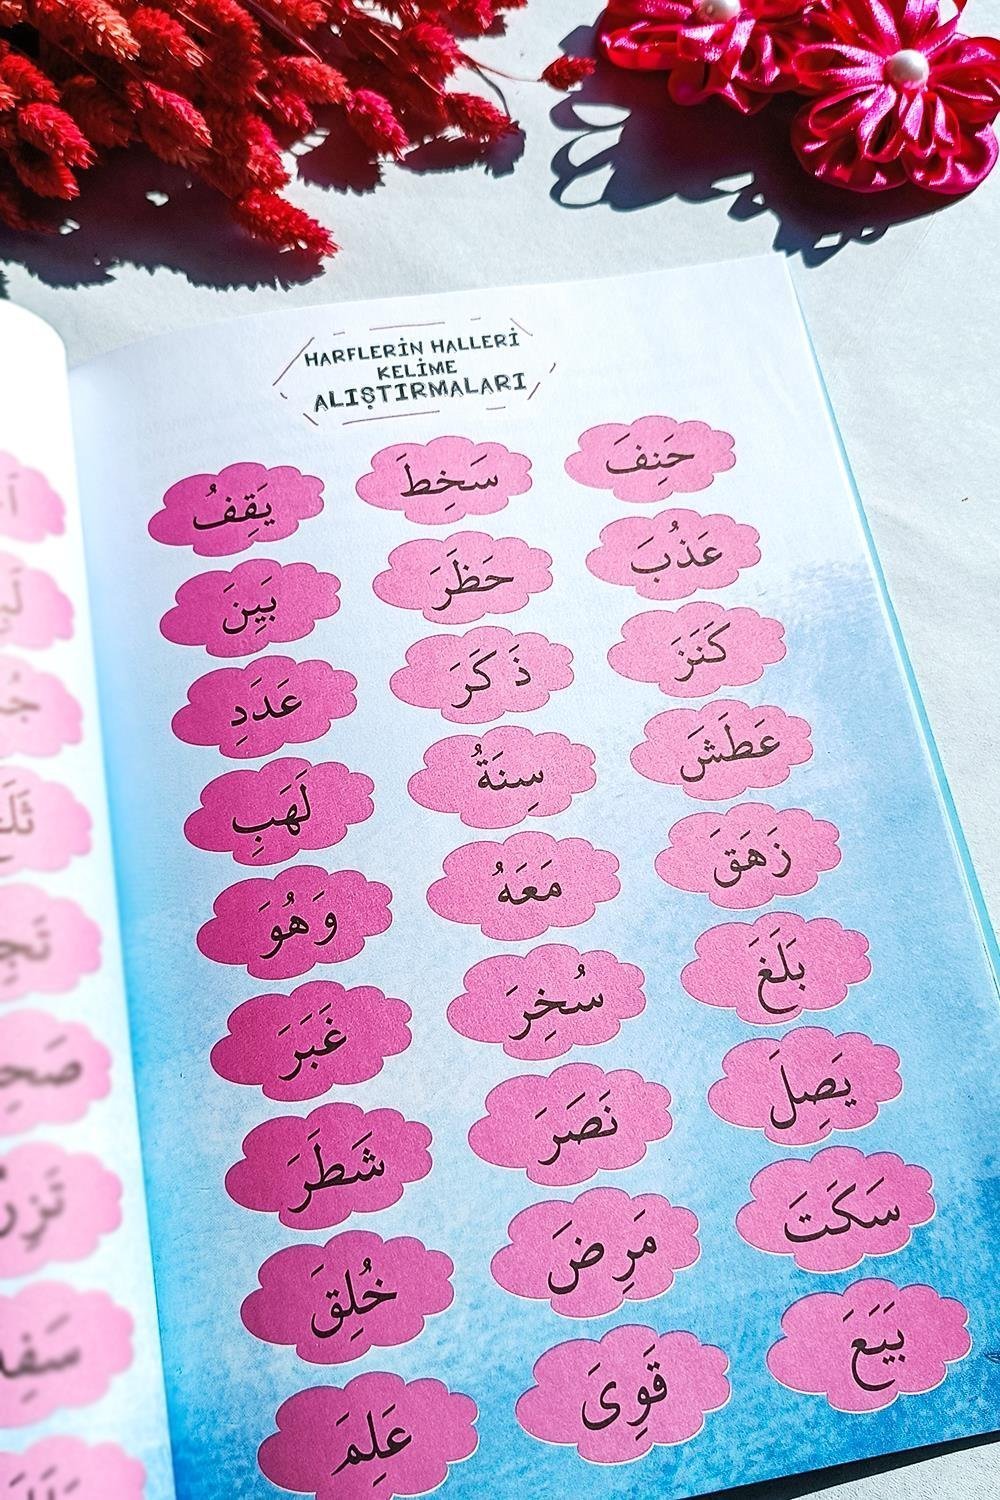 HARFLERİN HALLERİ
KELİME
ALIŞTIRMALARI
حَنِفَ سَخِطَ يَقِفُ
عَذُبَ حَظَرَ بَيِنَ
كَنَزَ ذَكَرَ عَدَدِ
عَطَشَ سِنَةُ لَهَبِ
زَهَقَ مَعَهُ وَهُوَ
بَلَغَ سُخِرَ غَبَرَ
يَصِلَ نَصَرَ شَطَرَ
سَكَتَ مَرِضَ خُلِقَ
بَيَعَ قَوِىَ عَلِمَ